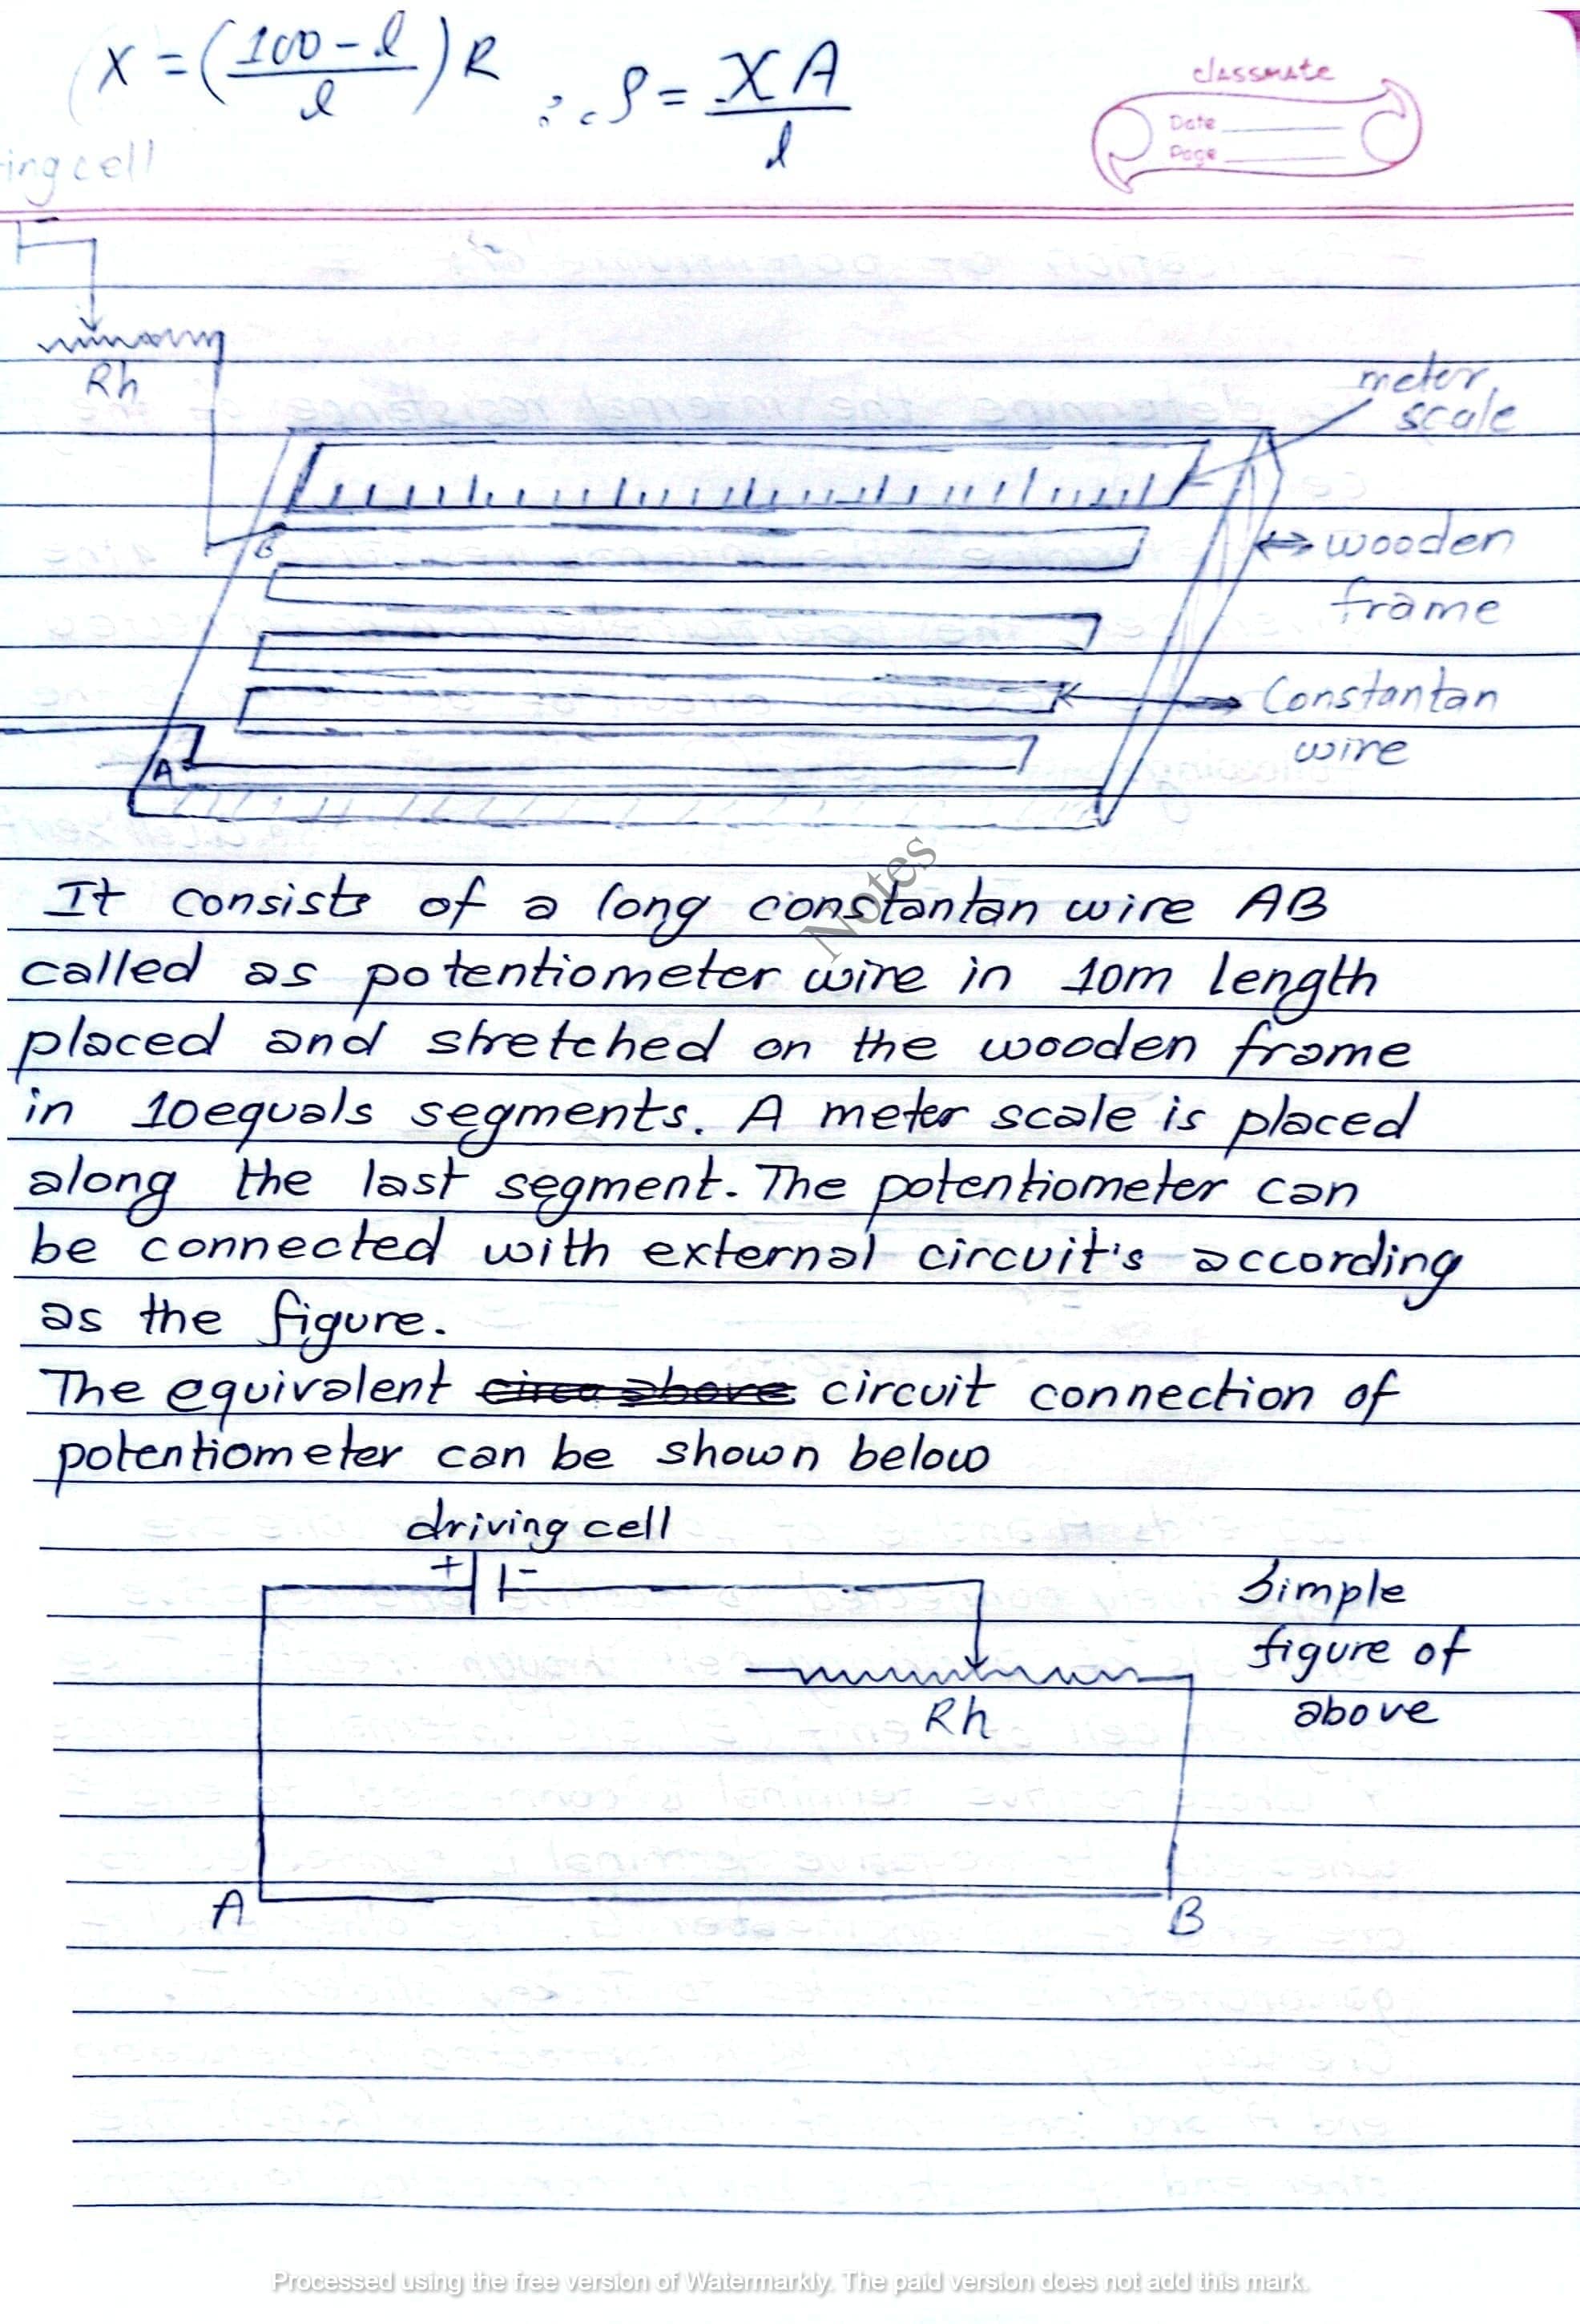 X = (100 - l / l) R ∴ ρ = XA / l
classmate
Date
Page
ing cell
Rh
meter
scale
B
wooden
frame
Constantan
wire
A
It consists of a long constantan wire AB
called as potentiometer wire in 10m length
placed and stretched on the wooden frame
in 10equals segments. A meter scale is placed
along the last segment. The potentiometer can
be connected with external circuit's according
as the figure.
The equivalent circuit connection of
potentiometer can be shown below
driving cell
+ -
Simple
figure of
above
Rh
A B
Notes
Processed using the free version of Watermarkly. The paid version does not add this mark.